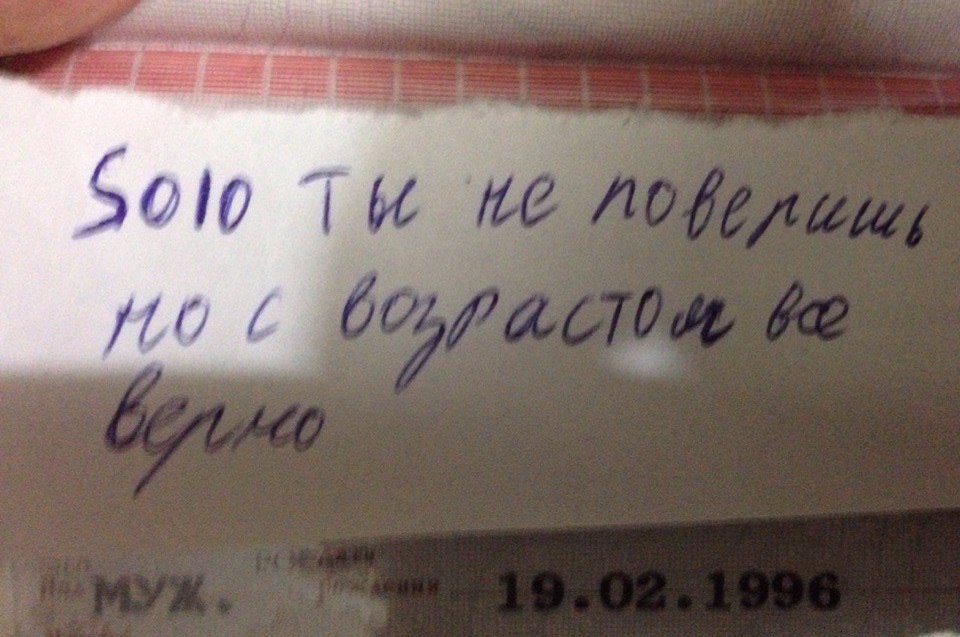 Solo ты не поверишь
но с возрастом все
верно
МУЖ.
рождения
19.02.1996